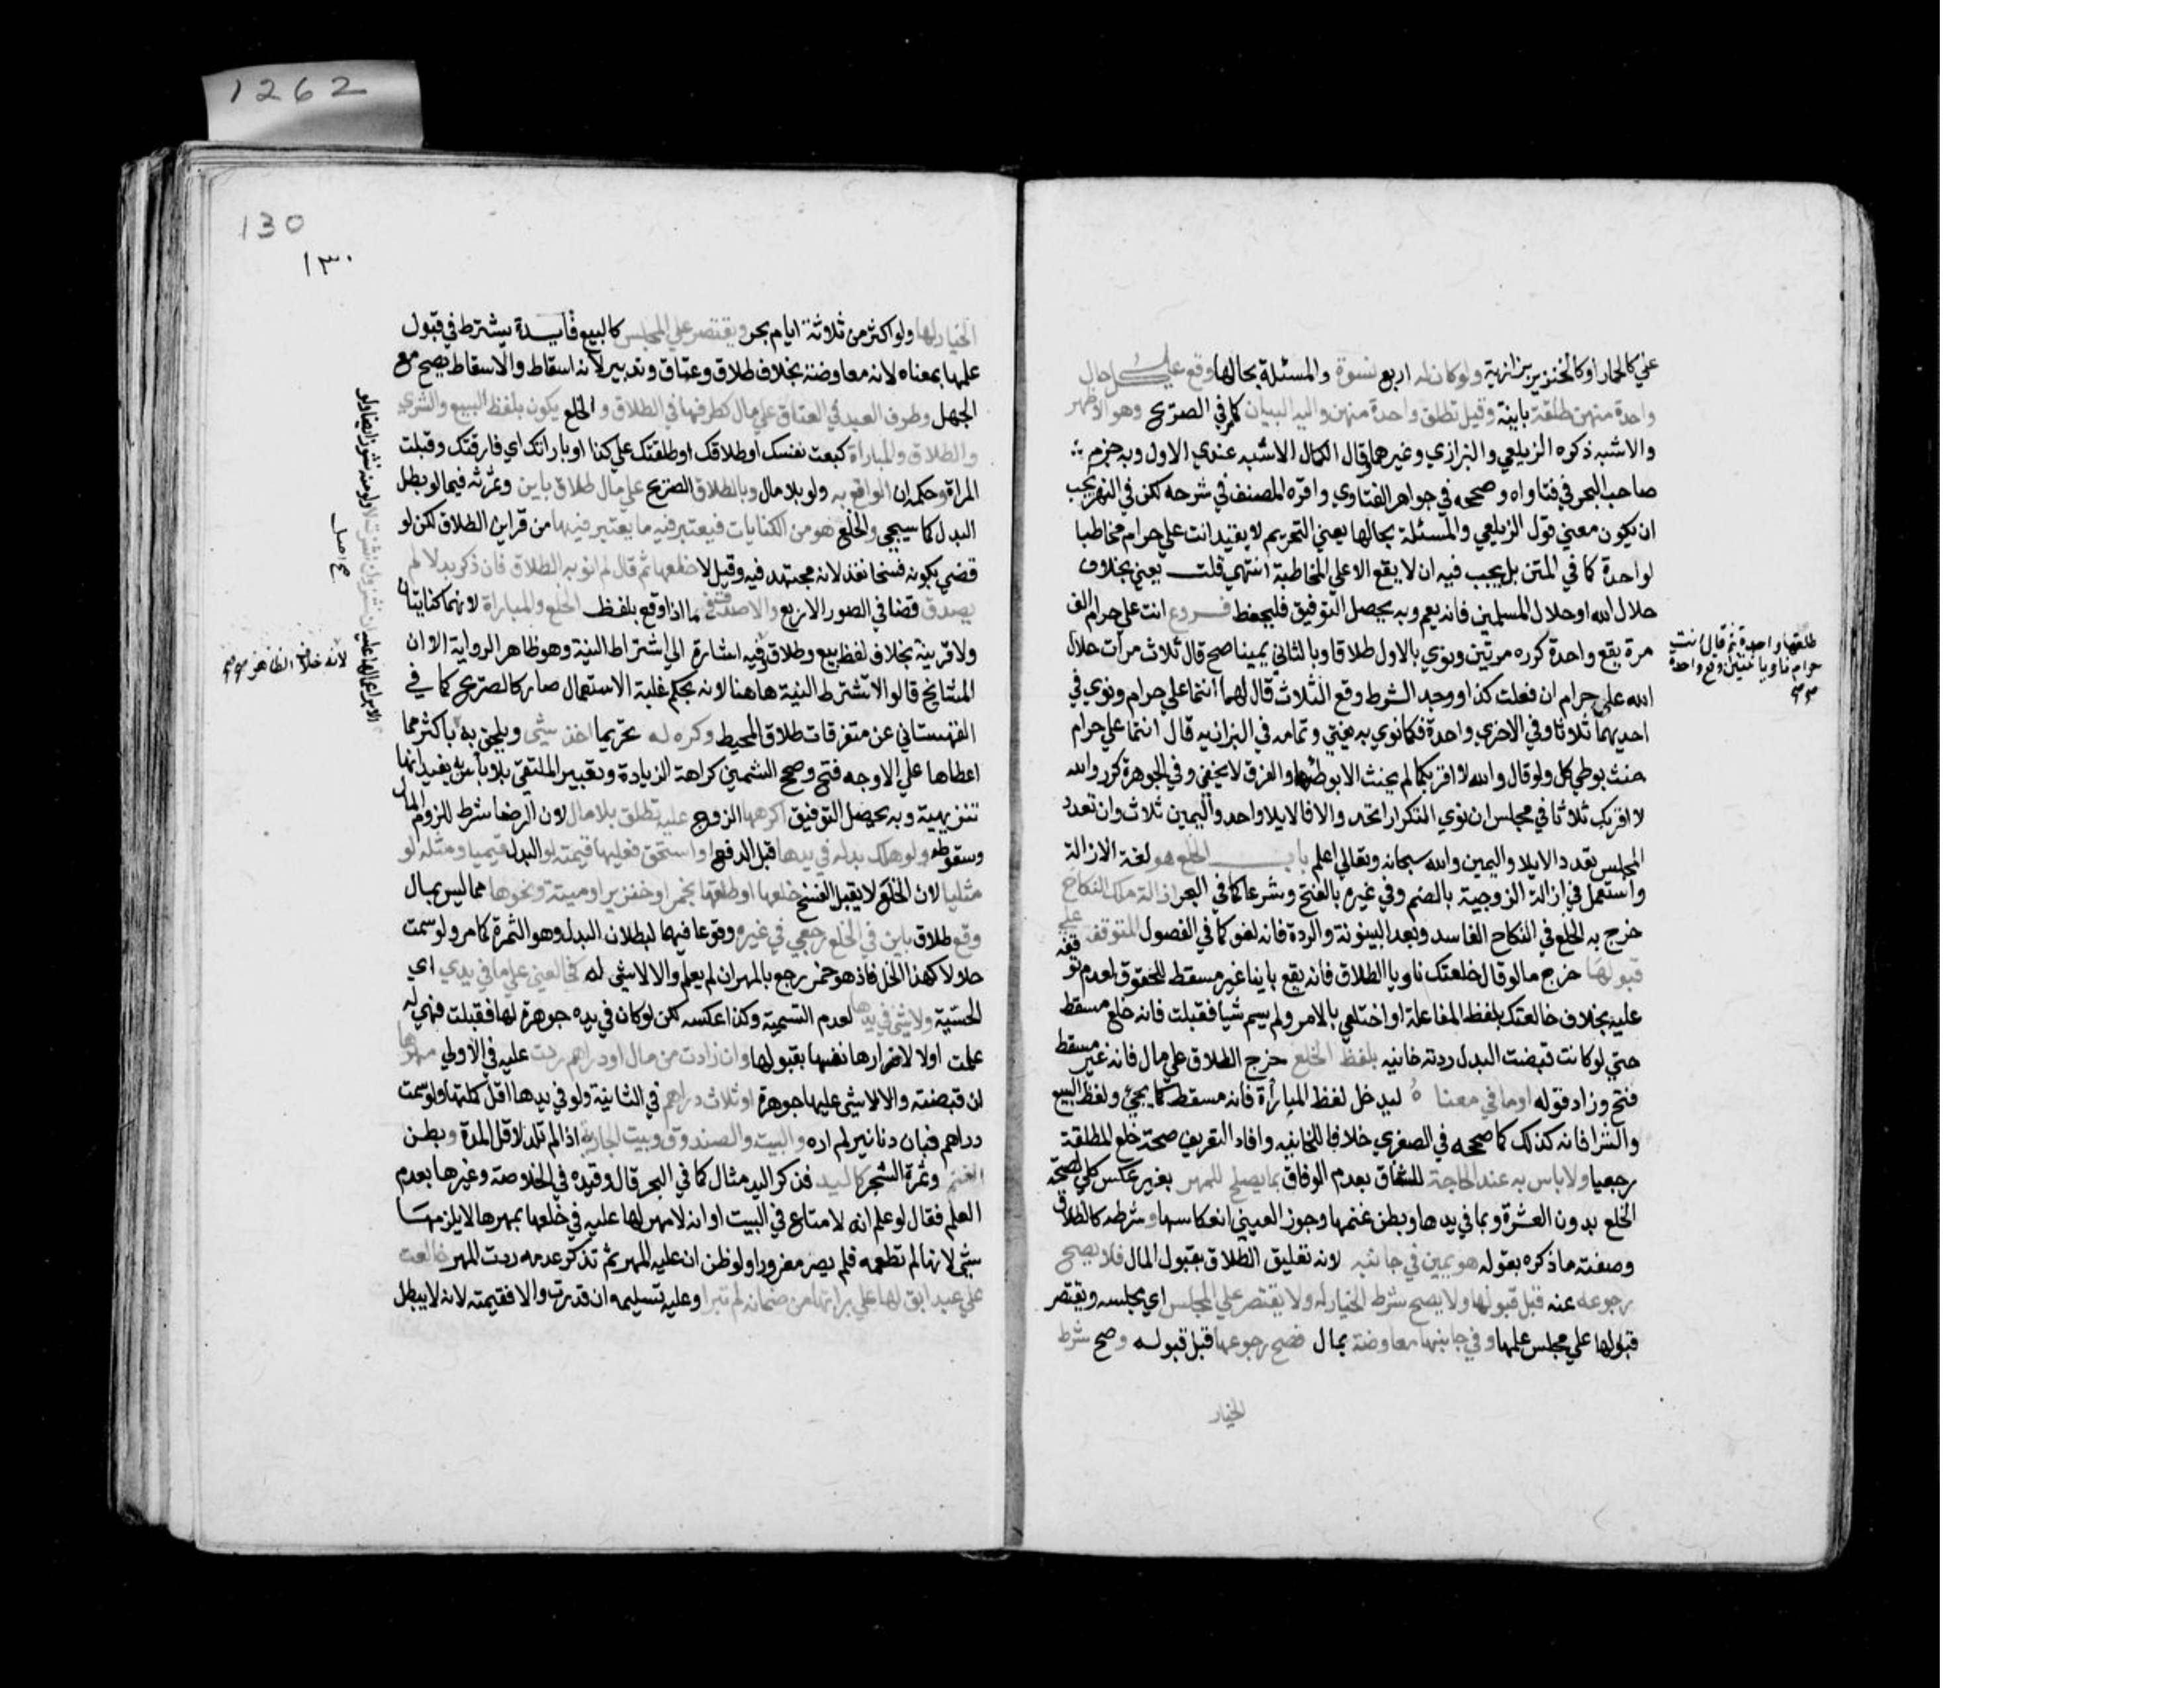 علي كالحمار او كالخنزير بزازية ولو كان له اربع نسوة والمسئلة بحالها وقع علي كل حال
واحدة منهن طلقة باينة وقيل تطلق واحدة منهن واليه البيان كما في الصريح وهو الاظهر
والاشبه ذكره الزيلعي والبزازي وغيرهما وقال الكمال الاشبه عندي الاول وبه جزم
صاحب البحر في فتاواه وصححه في جواهر الفتاوي واقره المصنف في شرحه لكن في النهر يجب
ان يكون معني قول الزيلعي والمسئلة بحالها يعني التحريم لا بقيد انت علي حرام مخاطبا
لواحدة كما في المتن بل يجب فيه ان لا يقع الا علي المخاطبة انتهي قلت يعني بخلاف
حلال الله او حلال المسلمين فانه يعم وبه يحصل التوفيق فليحفظ فروع انت علي حرام الف
مرة يقع واحدة كرره مرتين ونوي بالاول طلاقا وبالثاني يمينا صح قال ثلاث مرات حلال
الله علي حرام ان فعلت كذا ووجد الشرط وقع الثلاث قال لهما انتما علي حرام ونوي في
احديهما ثلاثا وفي الاخري واحدة فكما نوي به يفتي وتمامه في البزازيه قال انتما علي حرام
حنث بوطي كل ولو قال والله لا اقربكما لم يحنث الا بوطئهما والفرق لا يخفي وفي الجوهرة كرر والله
لا اقربك ثلاثا في مجلس ان نوي التكرار اتحد والا فالايلا واحد واليمين ثلاث وان تعدد
المجلس تعدد الايلا واليمين والله سبحانه وتعالي اعلم باب الخلع هو لغة الازالة
واستعمل في ازالة الزوجية بالضم وفي غيره بالفتح وشرعا كما في البحر ازالة ملك النكاح
خرج به الخلع في النكاح الفاسد وبعد البينونة والردة فانه لغو كما في الفصول المتوقفة علي
قبولها خرج ما لو قال خلعتك ناويا الطلاق فانه يقع باينا غير مسقط للحقوق لعدم توقفه
عليه بخلاف خالعتك بلفظ المفاعلة او اختلعي بالامر ولم يسم شيا فقبلت فانه خلع مسقط
حتي لو كانت قبضت البدل ردته خانيه بلفظ الخلع خرج الطلاق علي مال فانه غير مسقط
فتح وزاد قوله او ما في معناه ليدخل لفظ المبارأة فانه مسقط كما يجئ ولفظ البيع
والشرا فانه كذلك كما صححه في الصغري خلافا للخانيه وافاد التعريف صحة خلع المطلقة
رجعيا ولا باس به عند الحاجة للشقاق بعدم الوفاق بما يصلح للمهر بغير عكس كلي لصحة
الخلع بدون العشرة وبما في يدها وبطن غنمها وجوز العيني انعكاسها وشرطه كالطلاق
وصفته ما ذكره بقوله هو يمين في جانبه لانه تعليق الطلاق بقبول المال فلا يصح
رجوعه عنه قبل قبولها ولا يصح شرط الخيار له ولا يقتصر علي المجلس اي مجلسه ويقتصر
قبولها علي مجلس علمها وفي جانبها معاوضة بمال فصح رجوعها قبل قبوله وصح شرط
الخيار
طلقها واحدة ثم قال انت
حرام ناويا ثنتين وقع واحدة
1262
130
١٣٠
الخيار لها ولو اكثر من ثلاثة ايام بحر ويقتصر علي المجلس كالبيع فايدة يشترط في قبول
علمها بمعناه لانه معاوضة بخلاف طلاق وعتاق وتدبير لانه اسقاط والاسقاط يصح مع
الجهل وطرف العبد في العتاق علي مال كطرفها في الطلاق والخلع يكون بلفظ البيع والشري
والطلاق والمبارأة كبعت نفسك او طلاقك او طلقتك علي كذا او باراتك اي فارقتك وقبلت
المراة وحكمه ان الواقع به ولو بلا مال وبالطلاق الصريح علي مال طلاق باين وثمرته فيما لو بطل
البدل كما سيجي والخلع هو من الكنايات فيعتبر فيه ما يعتبر فيها من قراين الطلاق لكن لو
قضي بكونه فسخا نفذ لانه مجتهد فيه وقيل لا خلعها ثم قال لم انو به الطلاق فان ذكر بدلا لم
يصدق قضا في الصور الاربع والا صدق في ما اذا وقع بلفظ الخلع والمباراة لانهما كنايتان
ولا قرينة بخلاف لفظ بيع وطلاق وفيه اشارة الي اشتراط النية وهو ظاهر الرواية الا ان
المشايخ قالوا لا تشترط النية هاهنا لانه بحكم غلبة الاستعمال صار كالصريح كما في
القهستاني عن متفرقات طلاق المحيط وكره له تحريما اخذ شئي ويلحق به باكثر مما
اعطاها علي الاوجه فتح وصحح الشمني كراهة الزيادة وتعبير الملتقي بلا باس به يفيد انها
تنزيهية وبه يحصل التوفيق اكرهها الزوج عليه تطلق بلا مال لان الرضا شرط للزوم المال
وسقوطه ولو هلك بدله في يدها قبل الدفع او استحق فعليها قيمته لو البدل قيميا ومثله لو
مثليا لان الخلع لا يقبل الفسخ خلعها او طلقها بخمر او خنزير او ميتة ونحوها مما ليس بمال
وقع طلاق باين في الخلع رجعي في غيره وقوعا فيهما لبطلان البدل وهو الثمرة كما مر ولو سمت
حلالا كهذا الخل فاذ هو خمر رجع بالمهر ان لم يعلم والا لا شي له كخالعني علي ما في يدي اي
الحسية ولا شي في يدها لعدم التسمية وكذا عكسه لكن لو كان في يده جوهرة لها فقبلت فهي له
علمت او لا لاضرارها نفسها بقبولها وان زادت من مال او دراهم ردت عليه في الاولي مهرها
ان قبضته والا لا شي عليها جوهرة او ثلاث دراهم في الثانية ولو في يدها اقل كلتها ولو سمت
دراهم فبان دنانير لم اره والبيت والصندوق وبيت الجارية اذا لم تلد لاقل المدة وبطن
الغنم وثمرة الشجر كاليد فذكر اليد مثال كما في البحر قال وقيده في الخلاصة وغيرها بعدم
العلم فقال لو علم انه لا متاع في البيت او انه لا مهر لها عليه في خلعها بمهرها لا يلزمها
شي لانها لم تطمعه فلم يصر مغرورا ولو ظن ان عليه المهر ثم تذكر عدمه ردت المهر خالعت
علي عبد ابق لها علي براتها من ضمانه لم تبرا وعليه تسليمه ان قدرت والا فقيمته لانه لا يبطل
لانه خلاف الظاهر